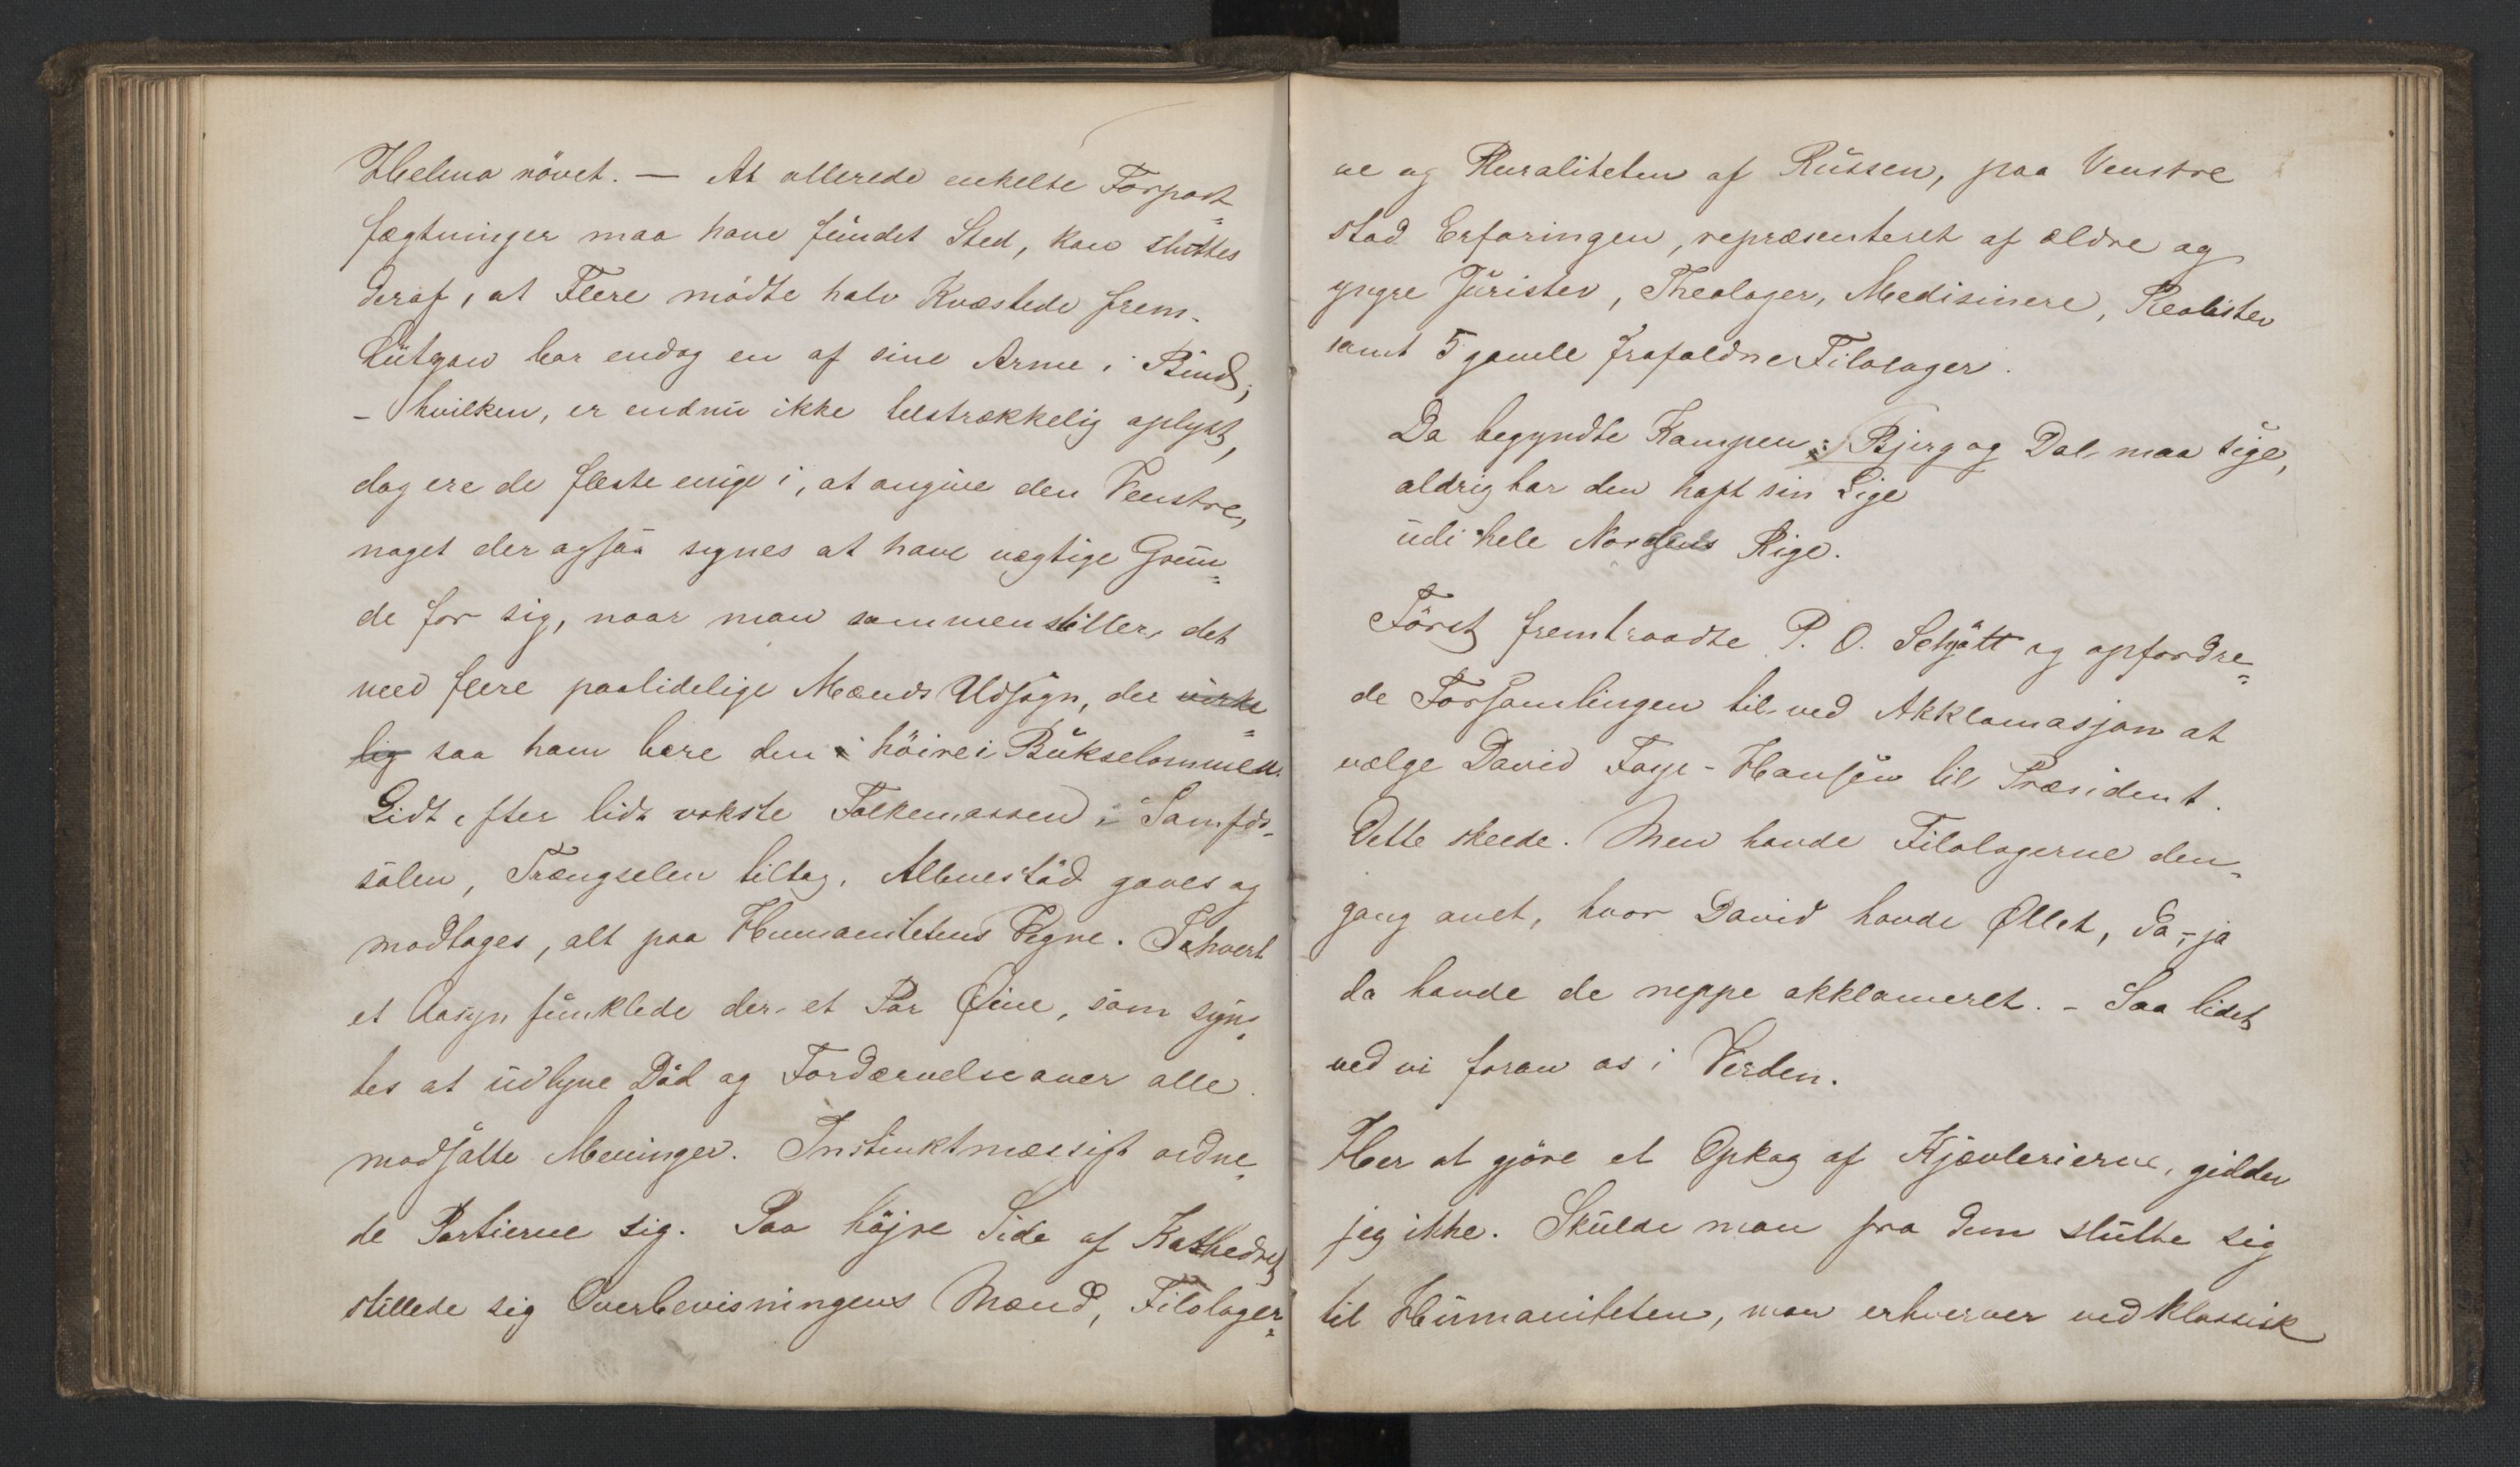 Helena røvet. — At allerede enkelte Forpost-
fægtninger maa have fundet Sted, kan sluttes
deraf, at Flere mødte halv Kvæstede frem.
Lütgow bar endog en af sine Arme i Bind;
– hvilken, er endnu ikke tilstrækkelig oplyst,
dog ere de fleste enige i, at angive den Venstre,
noget der ogsaa synes at have vægtige Grun-
de for sig, naar man sammenstiller, det
med flere paalidelige Mænds Udsagn, der virke-
lig saa ham bære den i høire i Bukselommen.
Lidt efter lidt vokste Folkemassen i Samfds-
salen, Trængselen tiltog, Albuestød gaves og
modtoges, alt paa Humanitetens Vegne. I hvert
et Aasyn funklede der et Par Øine, som syn-
tes at udlyne Død og Fordærvelse over alle
modsatte Meninger. Instinktmæssigt ordne-
de Partierne sig. Paa højre Side af Kathedret
stillede sig Overbevisningens Mænd, Filologer-
ne og Pluraliteten af Russen, paa Venstre
stod Erfaringen, repræsenteret af ældre og
yngre Jurister, Theologer, Medisinere, Realister
samt 5 gamle frafaldne Filologer.
Da begyndte Kampen: Bjerg og Dal maa sige,
aldrig har den haft sin Lige
udi hele Nordens Rige.
Først fremtraadte P. O. Schjøtt og opfordre-
de Forsamlingen til ved Akklamasjon at
vælge David Faye-Hansen til Præsident.
Dette skeede. Men havde Filologerne den-
gang anet, hvor David havde Øllet, da, – ja
da havde de neppe akklameret. – Saa lidet
ved vi foran os i Verden.
Her at gjøre et Opkog af Kjævlerierne, gidder
jeg ikke. Skulde man fra dem slutte sig
til Humaniteten, man erhverver ved klassisk